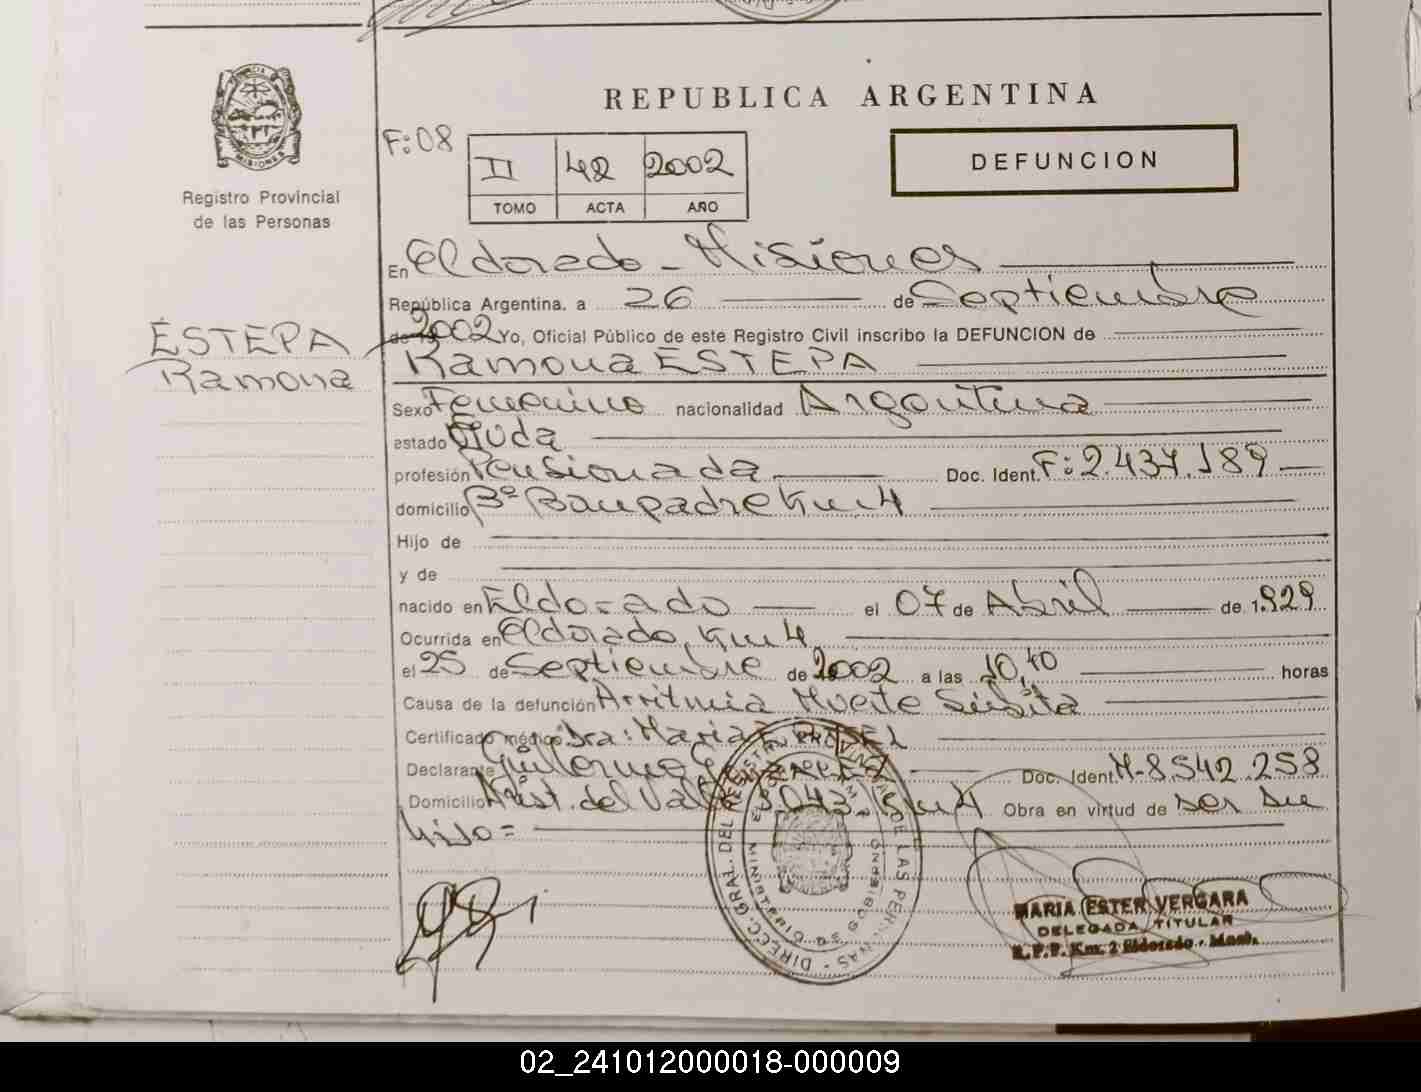 REPUBLICA ARGENTINA
Registro Provincial
de las Personas
F:08
II 42 2002
TOMO ACTA AÑO
DEFUNCION
ESTEPA
Ramona
En Eldorado - Misiones
República Argentina. a 26 de Septiembre
de 2002 Yo, Oficial Público de este Registro Civil inscribo la DEFUNCION de
Ramona ESTEPA
Sexo Femenino nacionalidad Argentina
estado Viuda
profesión Pensionada Doc. Ident. F: 2.437.189
domicilio Bº Baupadre Km 4
Hijo de
y de
nacido en Eldorado el 07 de Abril de 1.929
Ocurrida en Eldorado, Km 4
el 25 de Septiembre de 2002 a las 10,40 horas
Causa de la defunción Arritmia Muerte Súbita
Certificado médico Dra: Maria
Declarante Guillermo Doc. Ident. M-8.542.258
Domicilio Arist. del Valle Km 4 Obra en virtud de ser su
hijo =
DIRECC. GRAL. DEL REGISTRO PROVINCIAL DE LAS PERSONAS
MINISTERIO DE GOBIERNO
MARIA ESTER VERGARA
DELEGADA TITULAR
R.P.P. Km. 2 Eldorado - Mnes.
02_241012000018-000009